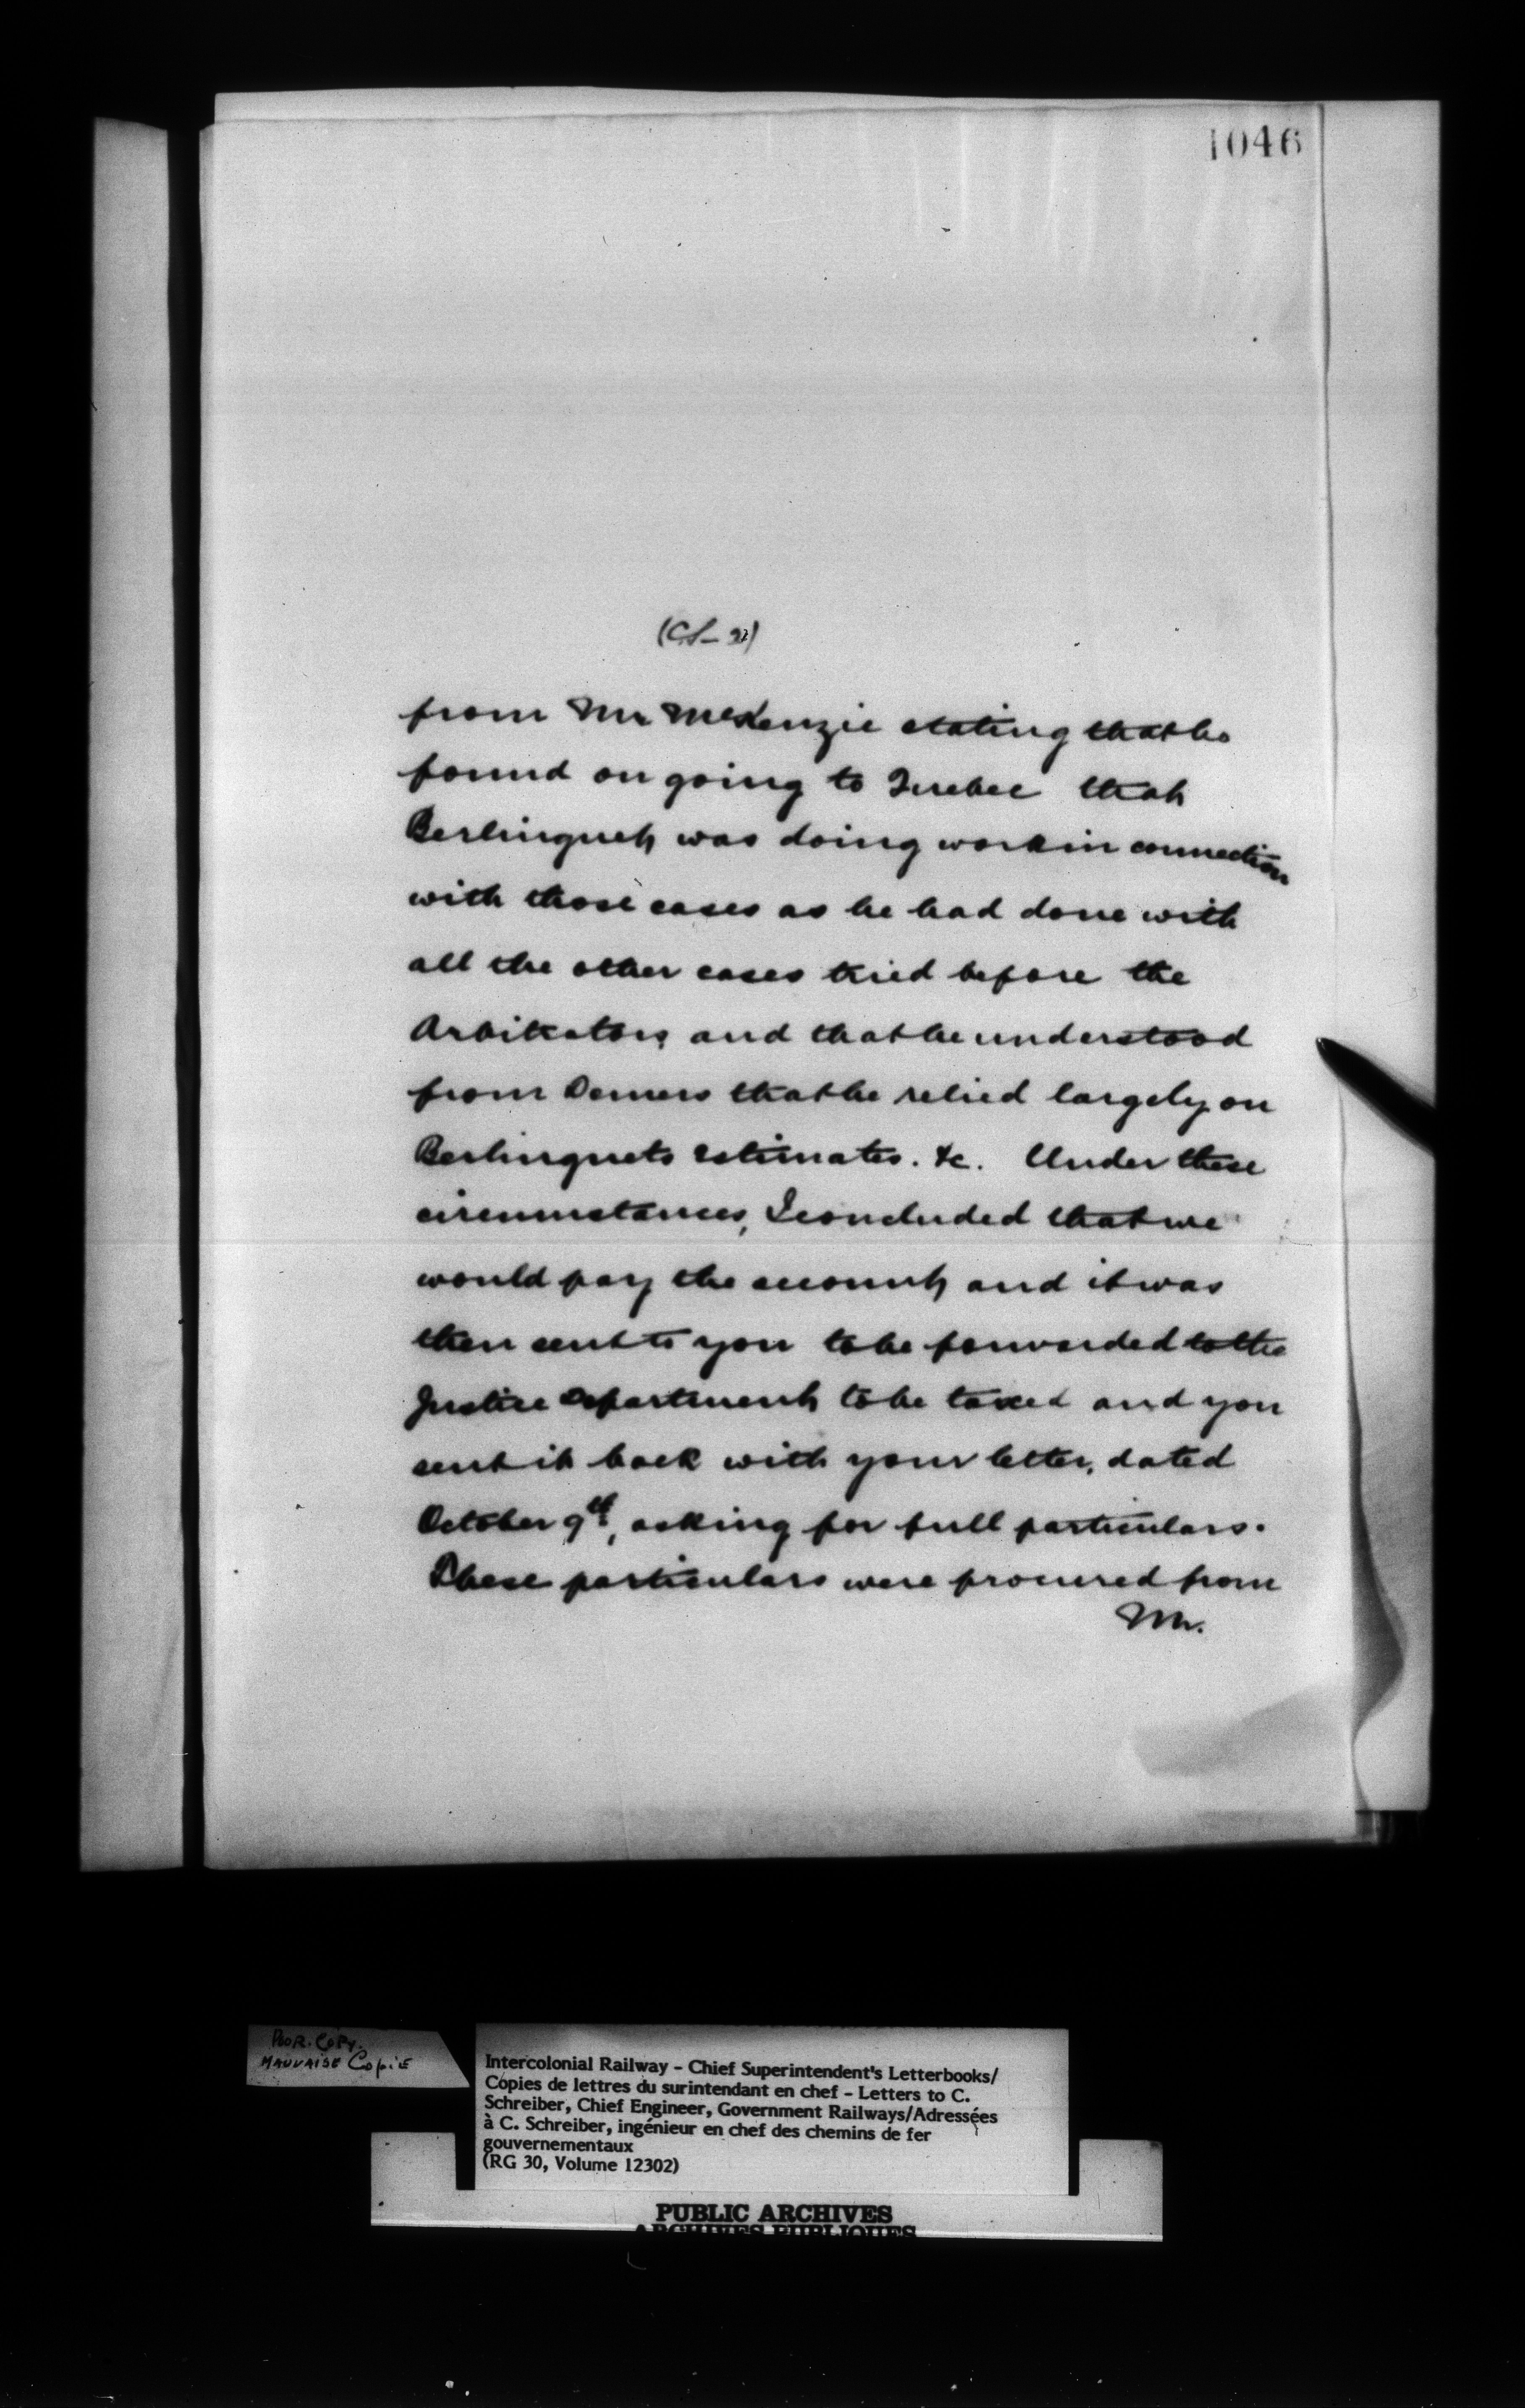 1046
(CS- 2)
from Mr McKenzie stating that he
found on going to Quebec that
Berlinguet was doing work in connection
with those cases as he had done with
all the other cases tried before the
Arbitrators, and that he understood
from Demers that he relied largely on
Berlinguets estimates. &c. Under these
circumstances, I concluded that we
would pay the account and it was
then sent to you to be forwarded to the
Justice Department to be taxed and you
sent it back with your letter, dated
October 9th, asking for full particulars.
These particulars were procured from
Mr.
POOR. COPY.
MAUVAISE COPIE
Intercolonial Railway - Chief Superintendent's Letterbooks/
Copies de lettres du surintendant en chef - Letters to C.
Schreiber, Chief Engineer, Government Railways/Adressées
à C. Schreiber, ingénieur en chef des chemins de fer
gouvernementaux
(RG 30, Volume 12302)
PUBLIC ARCHIVES
ARCHIVES PUBLIQUES